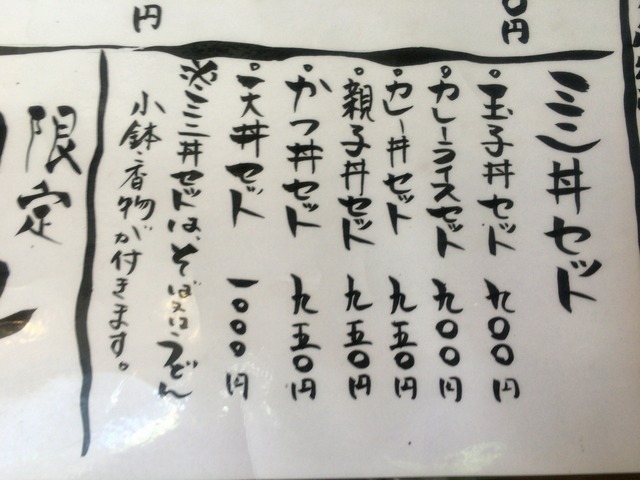 ミニ丼セット
。玉子丼セット 九〇〇円
。カレーライスセット 九〇〇円
。カレー丼セット 九五〇円
。親子丼セット 九五〇円
。かつ丼セット 九五〇円
。天丼セット 一〇〇〇円
※ミニ丼セットは、そば又はうどん
小鉢・香物が付きます。
限定
円
〇円